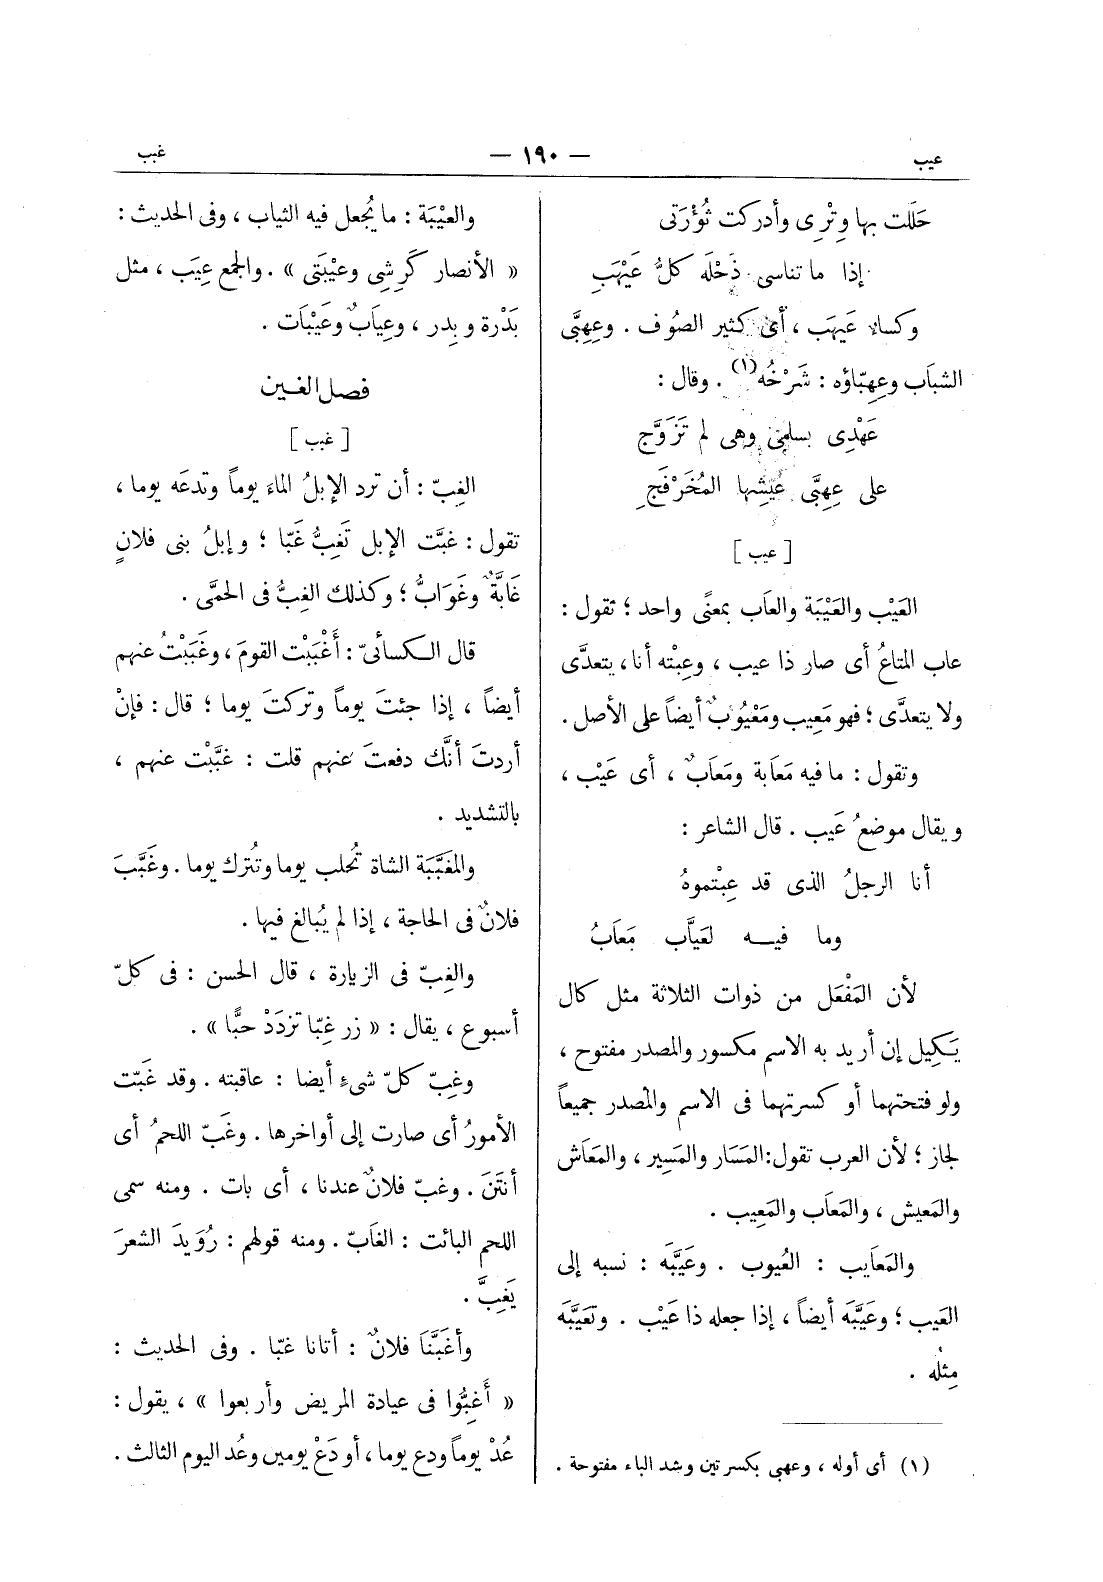 عيب
— ١٩٠ —
غبب
حَلَلت بها وِتْرِى وأدركت ثُؤْرَتى
إذا ما تناسى ذَحْلَه كلُّ عَيْهَبِ
وكساء عَيهَب ، أى كثير الصُوف . وعِهِبَّى
الشبَاب وعِهِبّاؤه : شَرْخُه (١) . وقال :
عَهْدِى بسلمى وهى لم تَزَوَّجِ
على عِهِبَّى عَيْشِها المُخَرْفَجِ
[ عيب ]
العَيْب والعَيْبَة والعَاب بمعنًى واحد ؛ تقول :
عاب المتاعُ أى صار ذا عيب ، وعِبْته أنا ، يتعدَّى
ولا يتعدَّى ؛ فهو مَعِيب ومَعْيُوبٌ أيضاً على الأصل .
وتقول : ما فيه مَعَابة ومَعَابٌ ، أى عَيْب ،
ويقال موضعُ عَيب . قال الشاعر :
أنا الرجلُ الذى قد عِبْتموهُ
وما فيـــه لعَيَّاب مَعَابُ
لأن المَفْعَل من ذوات الثلاثة مثل كال
يَكِيل إن أريد به الاسم مكسور والمصدر مفتوح ،
ولو فتحتهما أو كسرتهما فى الاسم والمصدر جميعاً
لجاز ؛ لأن العرب تقول:المَسَار والمَسِير ، والمَعَاش
والمَعيش ، والمَعَاب والمَعِيب .
والمَعَايب : العُيوب . وعَيَّبَه : نسبه إلى
العَيب ؛ وعَيَّبَه أيضاً ، إذا جعله ذا عَيْب . وتَعَيَّبَه
مِثلُه .
(١) أى أوله ، وعهبى بكسرتين وشد الباء مفتوحة .
والعَيْبَة : ما يُجعل فيه الثياب ، وفى الحديث :
« الأنصار كَرِشِى وعَيْبَتى » . والجمع عِيَب ، مثل
بَدْرة وبِدر ، وعِيَابٌ وعَيْبَات .
فصل الغـين
[ غبب ]
الغِبّ : أن ترد الإبلُ الماءَ يوماً وتدعَه يوما ،
تقول : غبَّت الإبل تَغِبُّ غَبّا ؛ وإبلُ بنى فلانٍ
غَابَّةٌ وغَوَابُّ ؛ وكذلك الغِبُّ فى الحمَّى .
قال الـكسائىّ : أَغْبَبْت القومَ ، وغَبَبْتُ عنهم
أيضاً ، إذا جئتَ يوماً وتركتَ يوما ؛ قال : فإنْ
أردتَ أنَّك دفعتَ عنهم قلت : غبَّبْت عنهم ،
بالتشديد .
والمغَبَّبَة الشاة تُحلب يوما وتُترك يوما . وغَبَّبَ
فلانٌ فى الحاجة ، إذا لم يُبالغ فيها .
والغِبّ فى الزيارة ، قال الحسن : فى كلّ
أسبوع ، يقال : « زر غِبّا تزدَدْ حبًّا » .
وغِبّ كلّ شىءٍ أيضا : عاقبته . وقد غبَّت
الأمورُ أى صارت إلى أواخرها . وغَبّ اللحمُ أى
أنتَنَ . وغبّ فلانٌ عندنا ، أى بات . ومنه سمى
اللحم البائت : الغَابّ . ومنه قولهم : رُوَيدَ الشعرَ
يَغِبَّ .
وأغَبَّنَا فلانٌ : أتانا غبّا . وفى الحديث :
« أَغِبُّوا فى عيادة المريض وأربعوا » ، يقول :
عُدْ يوماً ودع يوما ، أو دَعْ يومين وعُد اليوم الثالث .